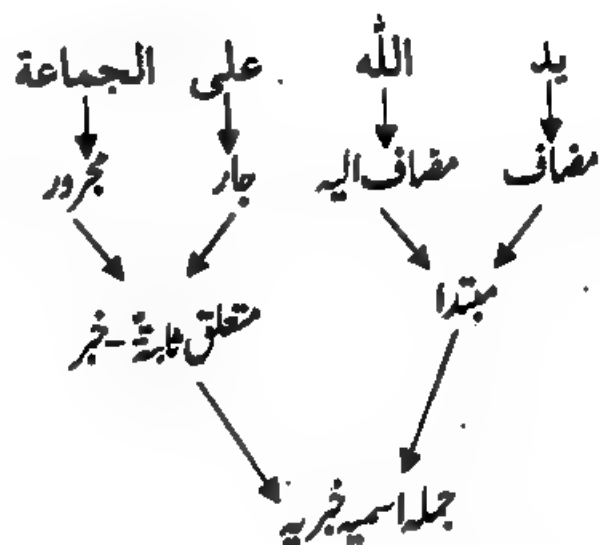 يد الله على الجماعة
مضاف مضاف اليه جار مجرور
مبتدا
متعلق ثابتة - خبر
جملہ اسمیہ خبریہ